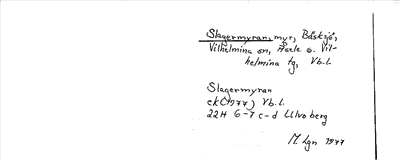 Slagermyran, myr, Båsksjö,
Vilhelmina sn, Åsele o. Vil-
helmina tg, Vb.l.
Slagermyran
ek(1977) Vb.l.
22H 6-7 c-d Ulvoberg
M. Lgn 1977